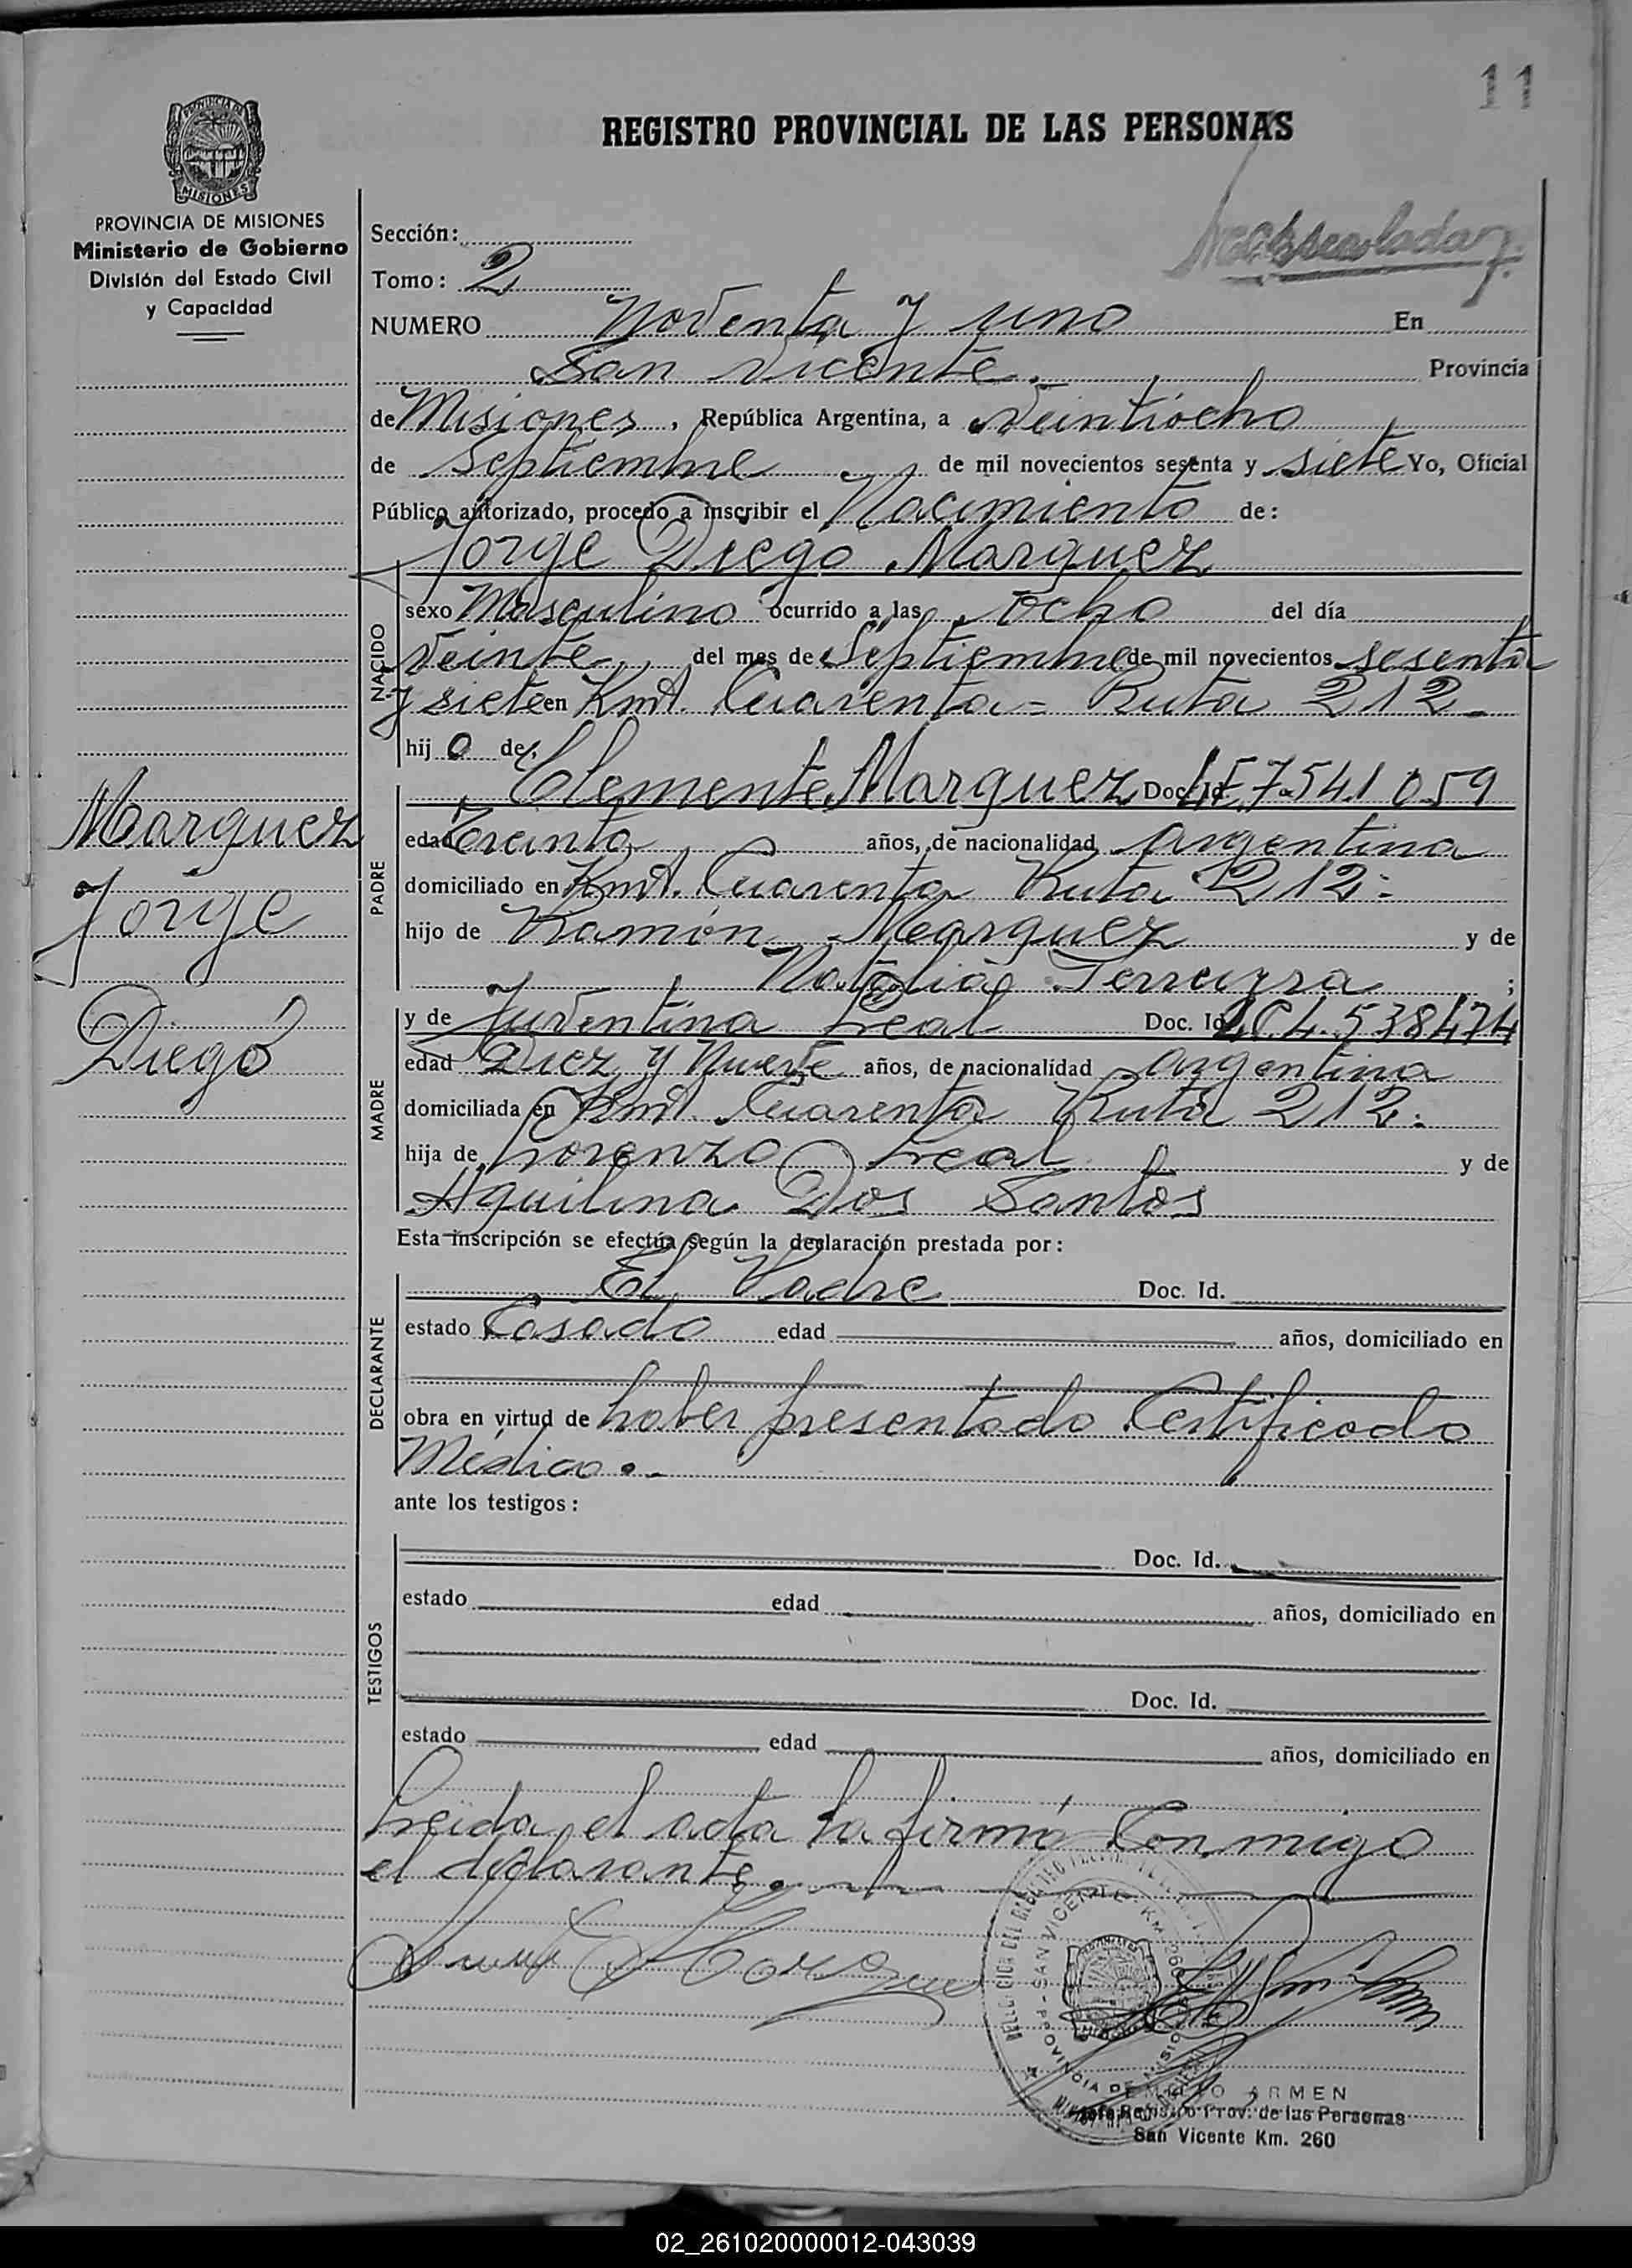 11
REGISTRO PROVINCIAL DE LAS PERSONAS
PROVINCIA DE MISIONES
Ministerio de Gobierno
División del Estado Civil
y Capacidad
Sección:
Tomo: 2
NUMERO Noventa y uno En
San Vicente. Provincia
de Misiones, República Argentina, a Veintiocho
de Septiembre de mil novecientos sesenta y siete Yo, Oficial
Público autorizado, procedo a inscribir el Nacimiento de:
Jorge Diego Marquez
NACIDO
sexo Masculino ocurrido a las ocho del día
Veinte del mes de Septiembre de mil novecientos sesenta
y siete en Kmt. Cuarenta = Ruta 212 -
hijo de:
Clemente Marquez Doc. Id. 7.541.059
Marquez
Jorge
Diego
PADRE
edad Treinta años, de nacionalidad argentina
domiciliado en Kmt. Cuarenta Ruta 212 =
hijo de Ramón Marquez y de
Natalia ;
MADRE
y de Juventina Leal Doc. Id. L.C. 4.538474
edad Diez y Nueve años, de nacionalidad argentina
domiciliada en Kmt. Cuarenta Ruta 212 :
hija de Lorenzo Leal y de
Aquilina Dos Santos
Esta inscripción se efectúa según la declaración prestada por:
DECLARANTE
El Padre Doc. Id.
estado Casado edad años, domiciliado en
obra en virtud de haber presentado Certificado
Médico.-
ante los testigos:
TESTIGOS
Doc. Id.
estado edad años, domiciliado en
Doc. Id.
estado edad años, domiciliado en
Leida el acta la firmó Conmigo
el declarante.
SAN VICENTE - KM. 260
PROVINCIA DE MISIONES
ARMEN
Jefe Registro Prov. de las Personas
San Vicente Km. 260
02_261020000012-043039